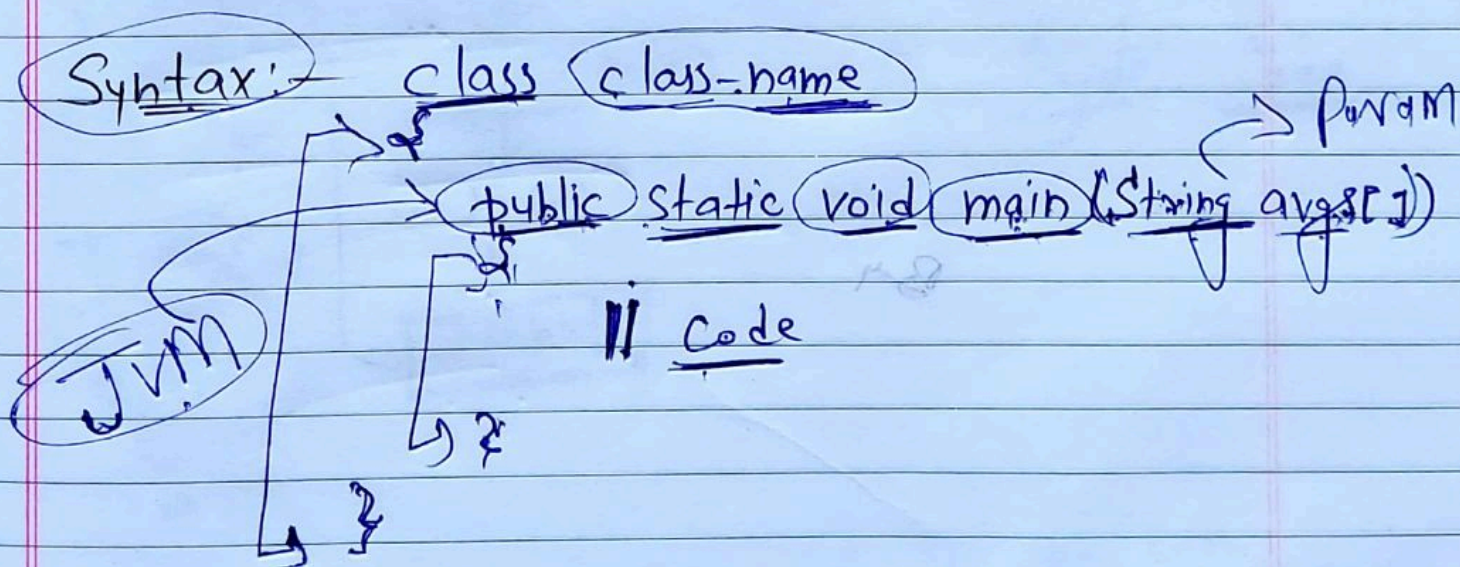 Syntax:- class class-name
{
Param
public static void main (String args[])
{
JVM
// Code
}
}